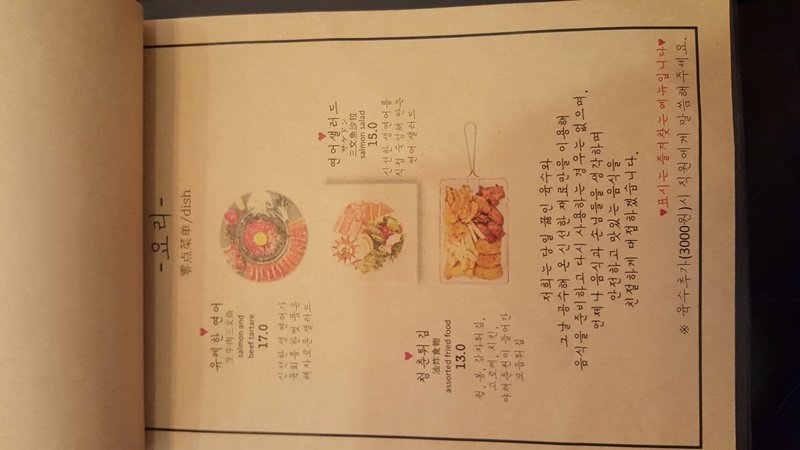 -요 리-
零点菜单/dish
♥
유케한 연어
生牛肉三文鱼
salmon and
beef tartare
17.0
신선한 생 연어가
육회를 한껏 품은
혜자로운 샐러드
♥
연어샐러드
サケドン
三文鱼沙拉
salmon salad
15.0
신선한 생연어를
직접 숙성해 만든
연어 샐러드
♥
청춘튀김
油炸食物
assorted fried food
13.0
윙, 봉, 감자튀김,
고로케, 치킨,
야채춘권이 들어간
모듬튀김
저희는 당일 끓인 육수와
그날 공수해 온 신선한 재료만을 이용해
음식을 준비하고 다시 사용하는 경우는 없으며,
언제나 음식과 손님들을 생각하며
안전하고 맛있는 음식을
친절하게 대접하겠습니다.
♥표시는 즐겨찾는 메뉴입니다♥
※ 육수추가(3000원)시 직원에게 말씀해주세요.